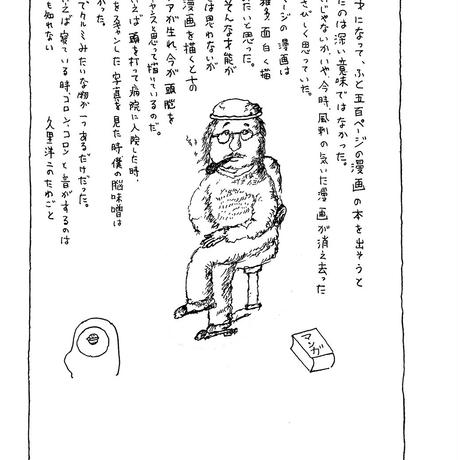 才になって、ふと五百ページの漫画の本を出そうと
たのは深い意味ではなかった。
じゃないが、いや、今時、風刺の気いた漫画が消え去った
さびしく思っていた。
ページの漫画は
雑多、面白く描
たいと思った。
そんな才能が
は思わないが
漫画を描くとその
アが生れ、今が頭脳を
ヤスと思って描いているのだ。
えば頭を打って病院に入院した時、
をスキャンした写真を見た時僕の脳味噌は
った。
でクルミみたいな物が一つあるだけだった。
えば寝ている時、コロン、コロン、と音がするのは
も知れない 久里洋二のたわごと
マンガ